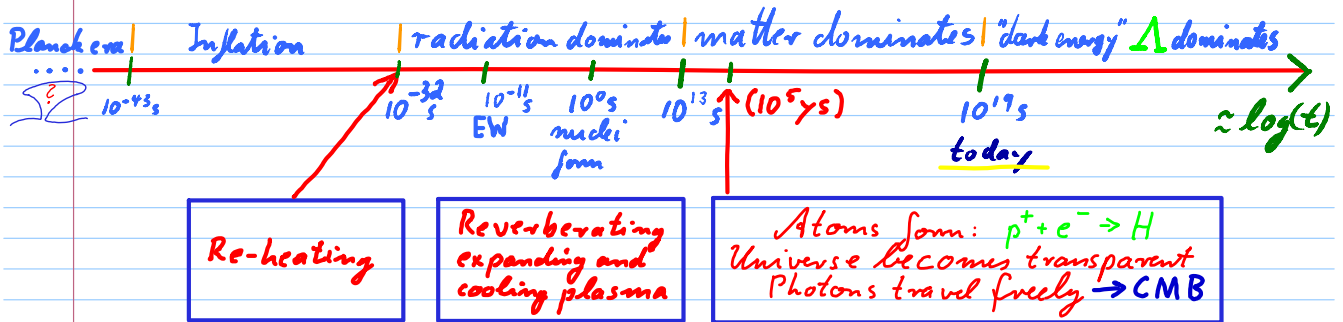 Planck era | Inflation | radiation dominates | matter dominates | "dark energy" Λ dominates
....
?
10⁻⁴³s 10⁻³²s 10⁻¹¹s 10⁰s 10¹³s (10⁵ys) 10¹⁹s ≈ log(t)
EW nuclei
form
today
Re-heating
Reverberating
expanding and
cooling plasma
Atoms form: p⁺ + e⁻ → H
Universe becomes transparent
Photons travel freely → CMB